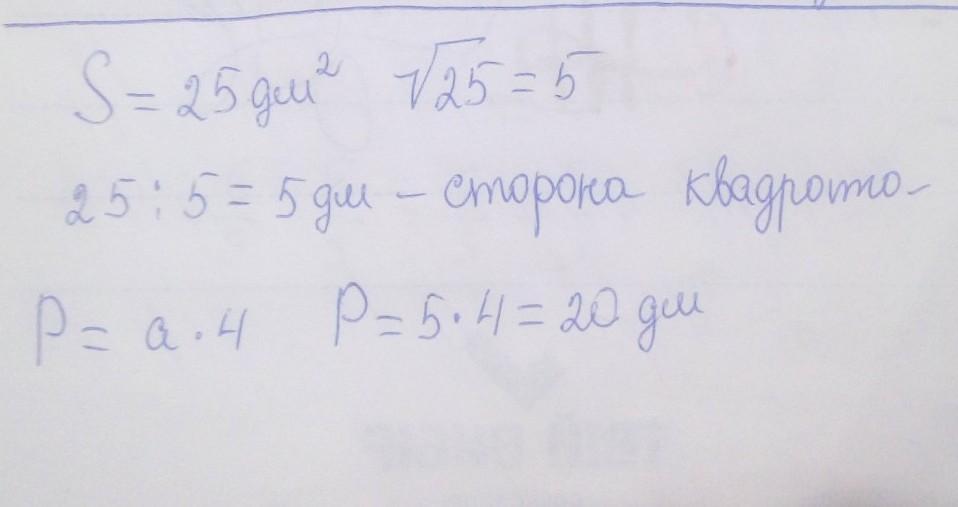 S = 25 дм² √25 = 5
25 : 5 = 5 дм – сторона квадрата-
P = a · 4 P = 5 · 4 = 20 дм